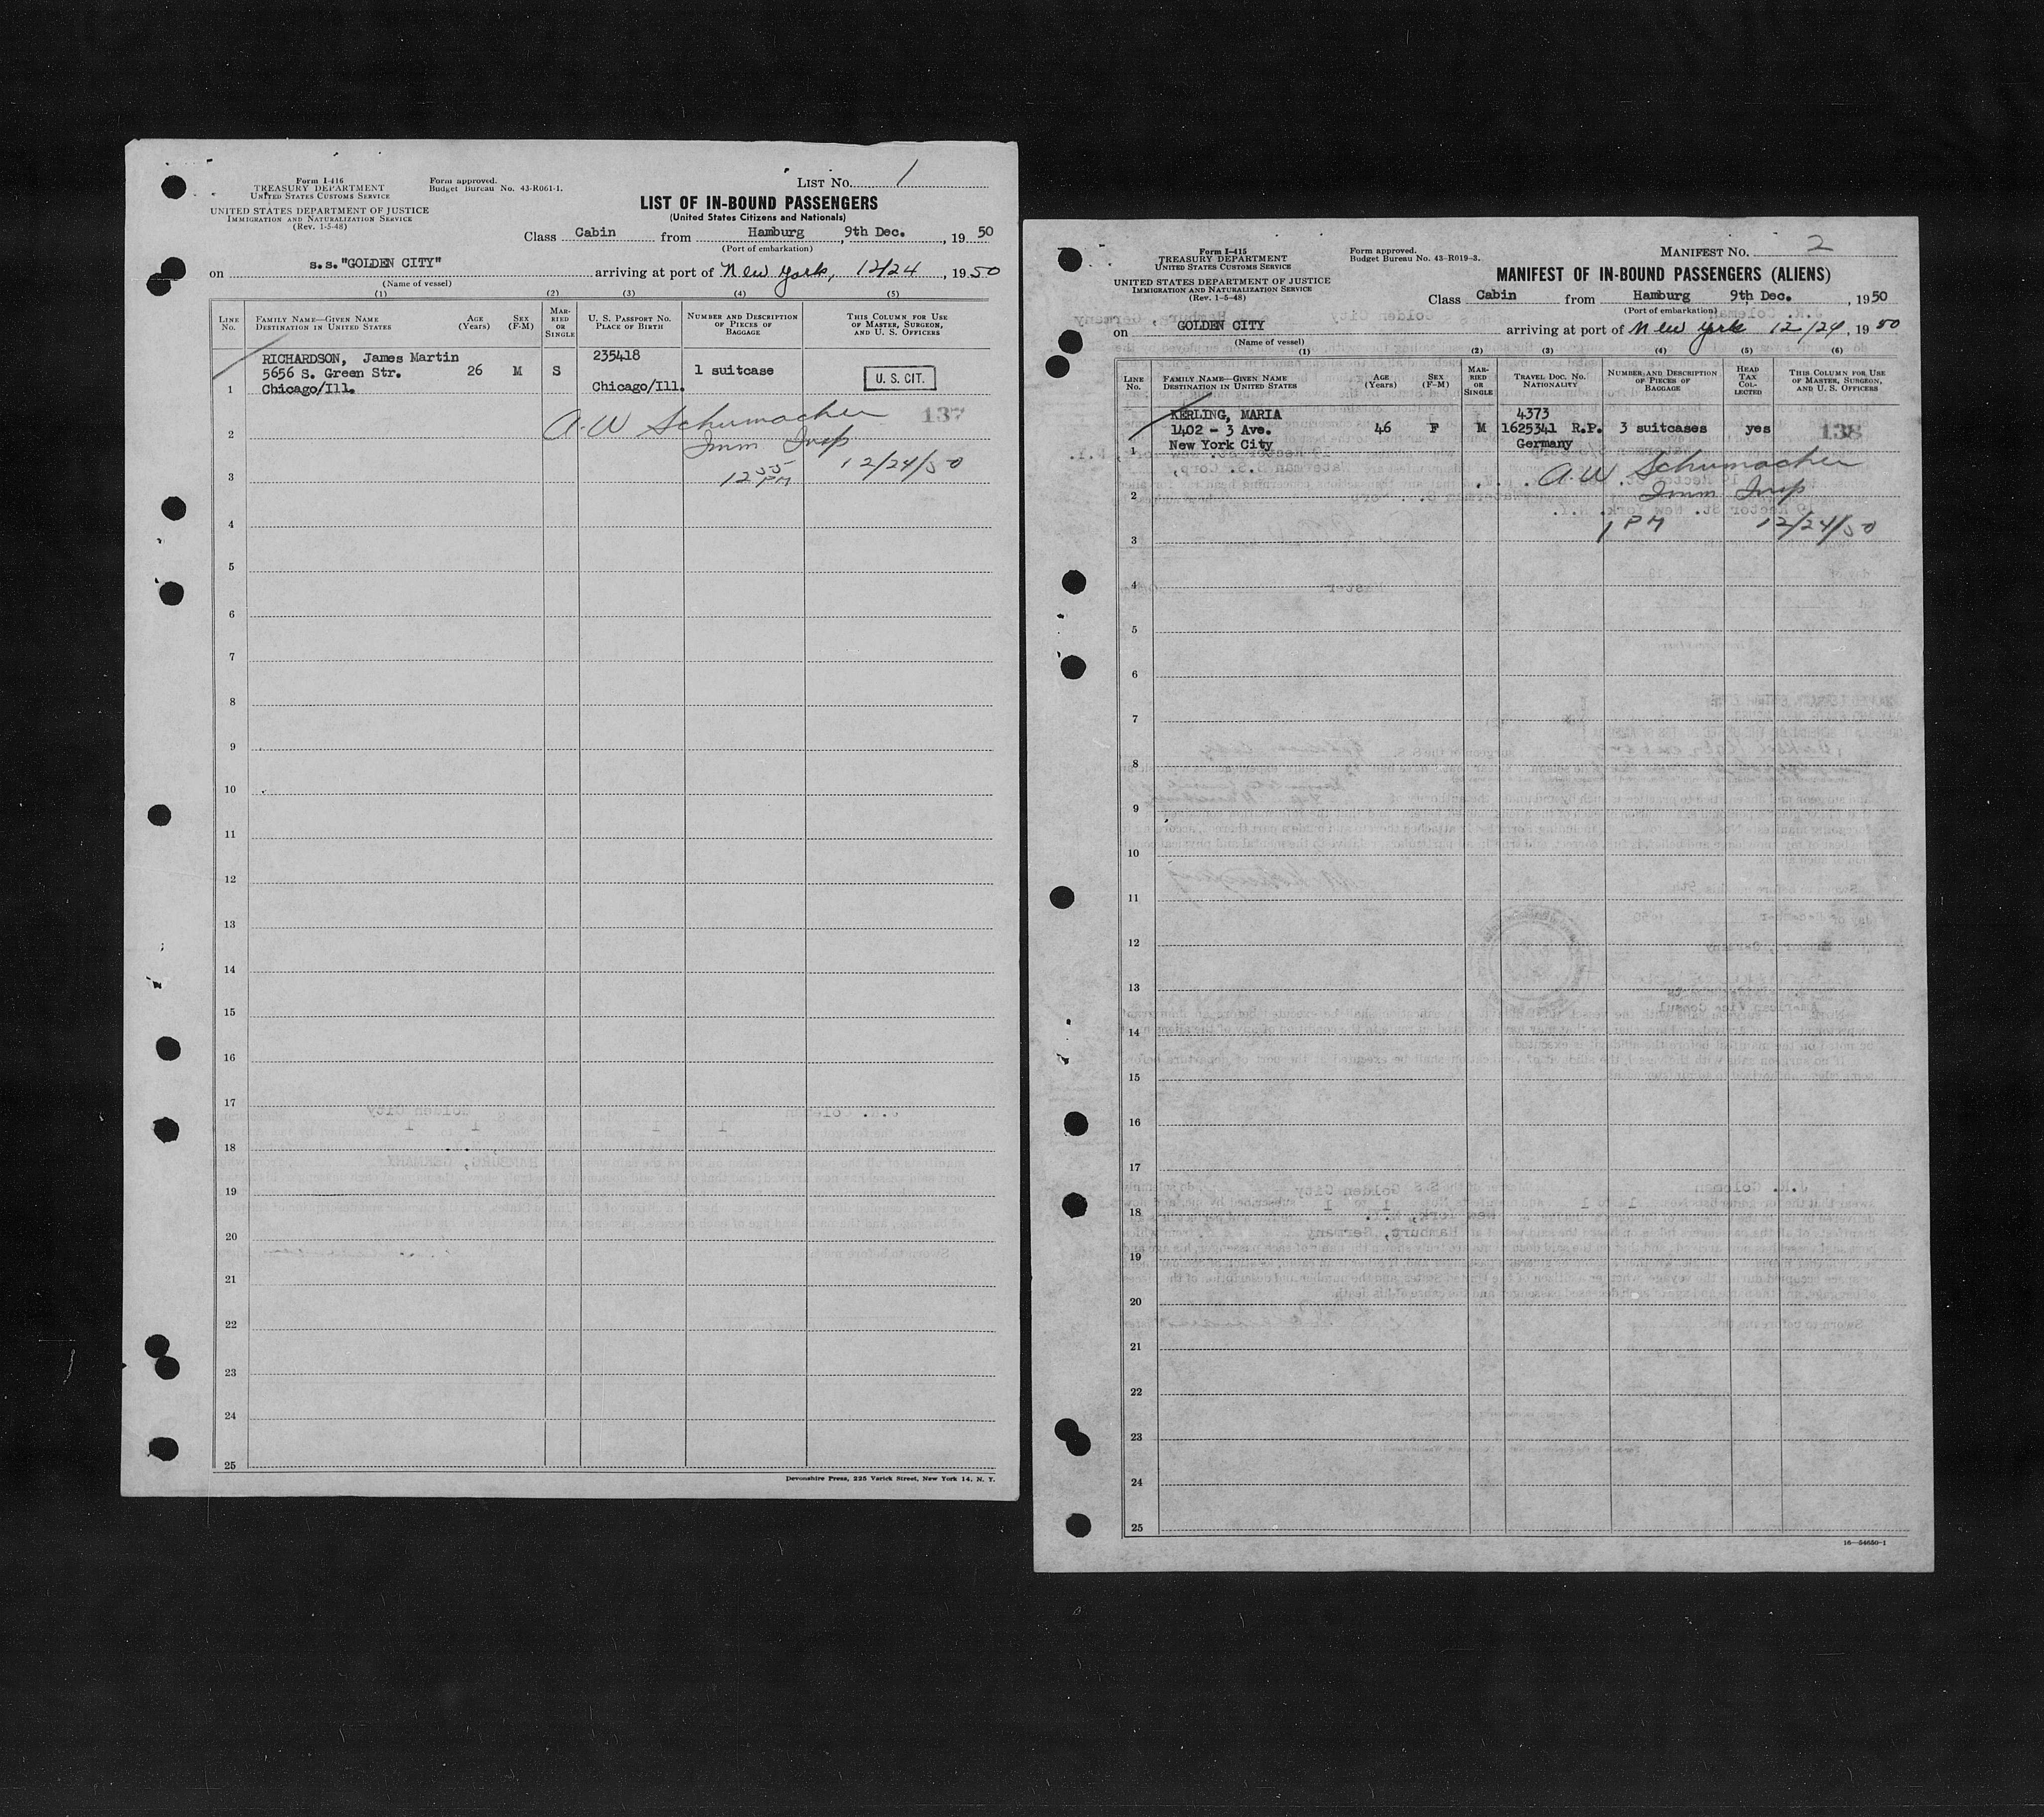 Form I-416
TREASURY DEPARTMENT
UNITED STATES CUSTOMS SERVICE
UNITED STATES DEPARTMENT OF JUSTICE
IMMIGRATION AND NATURALIZATION SERVICE
(Rev. 1-5-48)
Form approved.
Budget Bureau No. 43-R061-1.
LIST NO. 1
LIST OF IN-BOUND PASSENGERS
(United States Citizens and Nationals)
Class Cabin from Hamburg, 9th Dec., 1950
(Port of embarkation)
on s.s."GOLDEN CITY" arriving at port of New York, 12/24, 1950
(Name of vessel)
(1) (2) (3) (4) (5)
LINE No. FAMILY NAME—GIVEN NAME DESTINATION IN UNITED STATES AGE (Years) SEX (F-M) MARRIED OR SINGLE U. S. PASSPORT NO. PLACE OF BIRTH NUMBER AND DESCRIPTION OF PIECES OF BAGGAGE THIS COLUMN FOR USE OF MASTER, SURGEON, AND U. S. OFFICERS
RICHARDSON, James Martin 235418
5656 S. Green Str. 26 M S 1 suitcase U. S. CIT.
1 Chicago/Ill. Chicago/Ill.
A. W Schumacher 137
2 Imm Insp
12 55 PM 12/24/50
3
4
5
6
7
8
9
10
11
12
13
14
15
16
17
18
19
20
21
22
23
24
25
Devonshire Press, 225 Varick Street, New York 14, N. Y.
Form I-415
TREASURY DEPARTMENT
UNITED STATES CUSTOMS SERVICE
UNITED STATES DEPARTMENT OF JUSTICE
IMMIGRATION AND NATURALIZATION SERVICE
(Rev. 1-5-48)
Form approved.
Budget Bureau No. 43-R019-3.
MANIFEST NO. 2
MANIFEST OF IN-BOUND PASSENGERS (ALIENS)
Class Cabin from Hamburg 9th Dec., 1950
(Port of embarkation)
on GOLDEN CITY arriving at port of New York 12/24, 1950
(Name of vessel)
(1) (2) (3) (4) (5) (6)
LINE No. FAMILY NAME—GIVEN NAME DESTINATION IN UNITED STATES AGE (Years) SEX (F-M) MARRIED OR SINGLE TRAVEL DOC. NO. NATIONALITY NUMBER AND DESCRIPTION OF PIECES OF BAGGAGE HEAD TAX COLLECTED THIS COLUMN FOR USE OF MASTER, SURGEON, AND U. S. OFFICERS
KERLING, MARIA 4373
1402 - 3 Ave. 46 F M 1625341 R.P. 3 suitcases yes 138
1 New York City Germany
A. W. Schumacher
2 Imm Insp
1 PM 12/24/50
3
4
5
6
7
8
9
10
11
12
13
14
15
16
17
18
19
20
21
22
23
24
25
16—54650-1